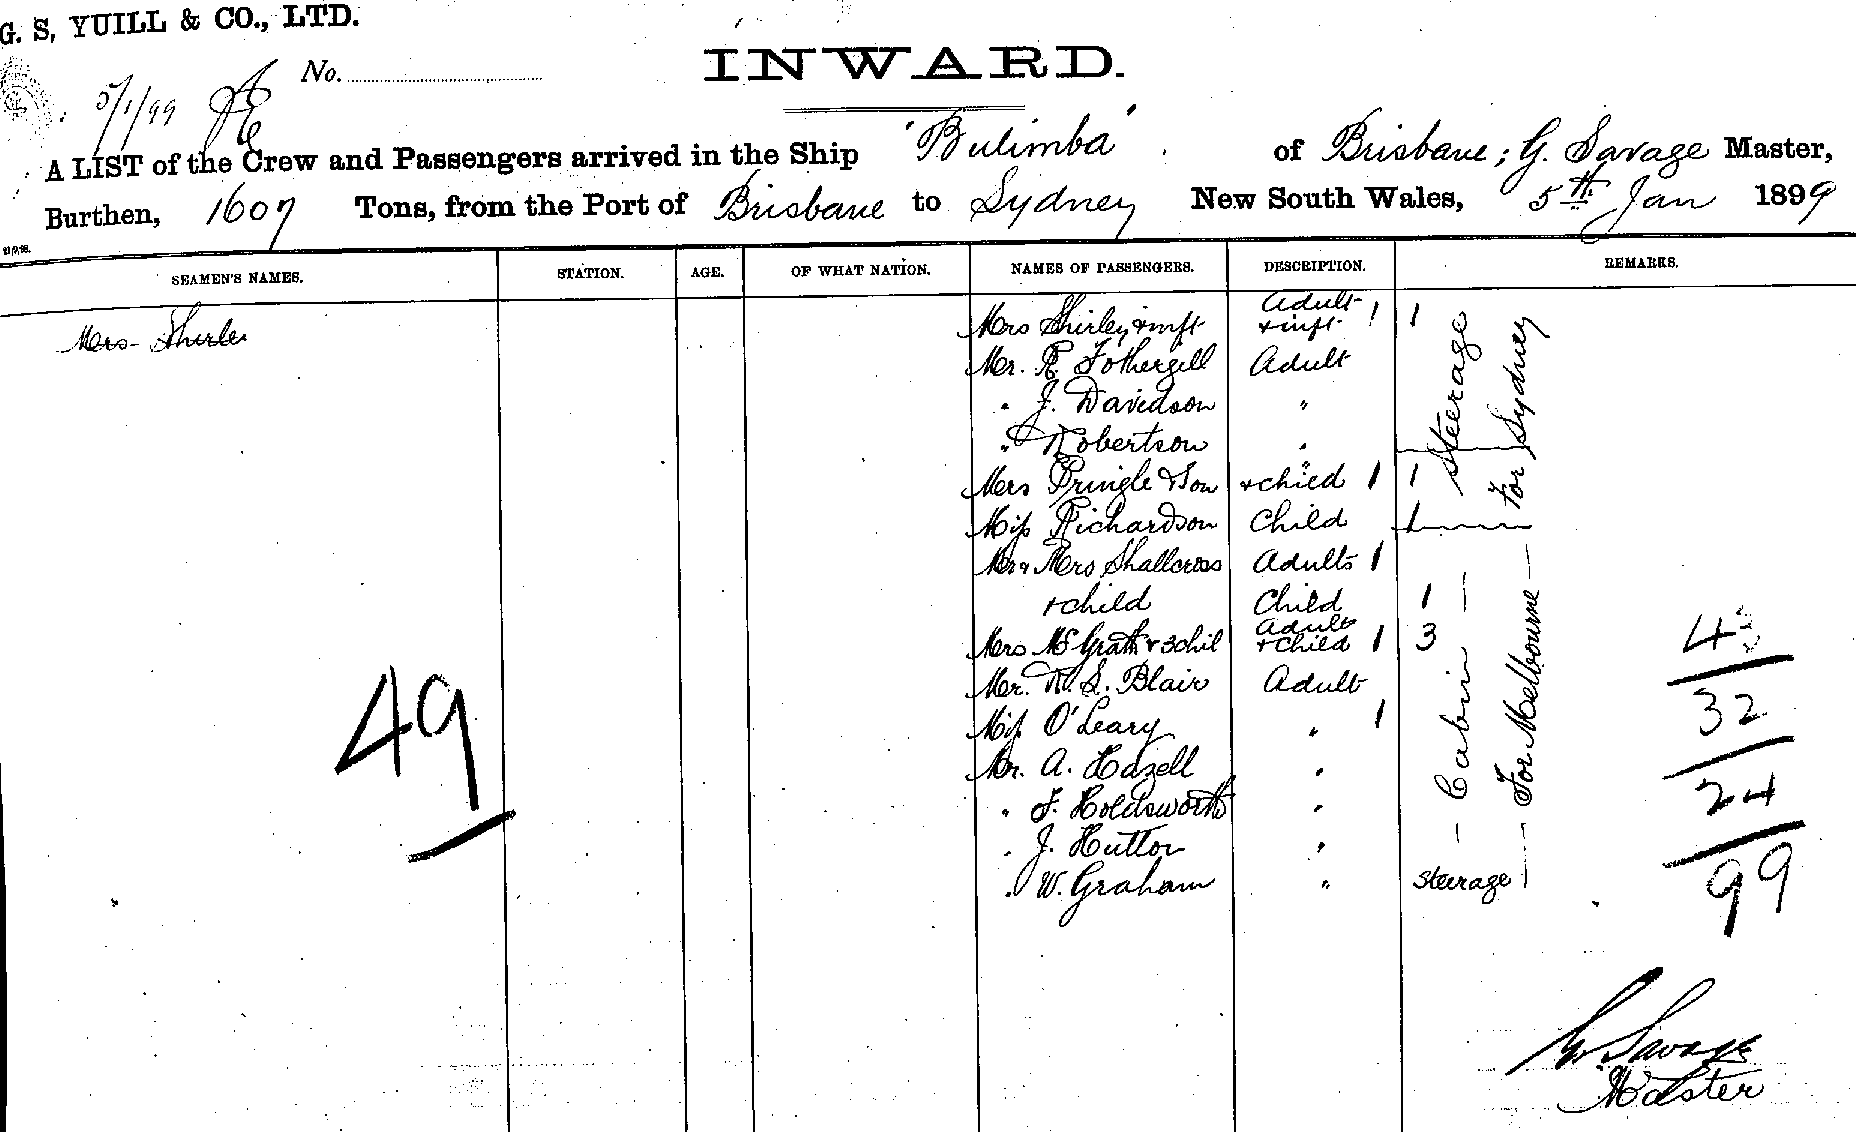 G. S, YUILL & CO., LTD.
No.
INWARD.
5/1/99
A LIST of the Crew and Passengers arrived in the Ship "Bulimba" of Brisbane; G. Savage Master,
Burthen, 1607 Tons, from the Port of Brisbane to Sydney New South Wales, 5th Jan 1899
SEAMEN'S NAMES. STATION. AGE. OF WHAT NATION. NAMES OF PASSENGERS. DESCRIPTION. REMARKS.
Mrs Shirley & inft Adult & inft. 1 1
Mrs Shirle
Mr. R. Fothergill Adult
" J. Davidson "
" Robertson "
Mrs Pringle & Son " & child 1 1
Miss Richardson Child 1
Steerage
For Sydney
Mr & Mrs Shallcross Adults 1
& child Child 1
Mrs McGrath & 3 chil Adult & Child 1 3
Mr. R. S. Blair Adult
Miss O'Leary " 1
Mr. A. Hazell "
" F. Holdsworth "
" J. Hutton "
" W. Graham " Steerage
— Cabin —
— For Melbourne —
49
43
32
24
99
G. Savage
Master